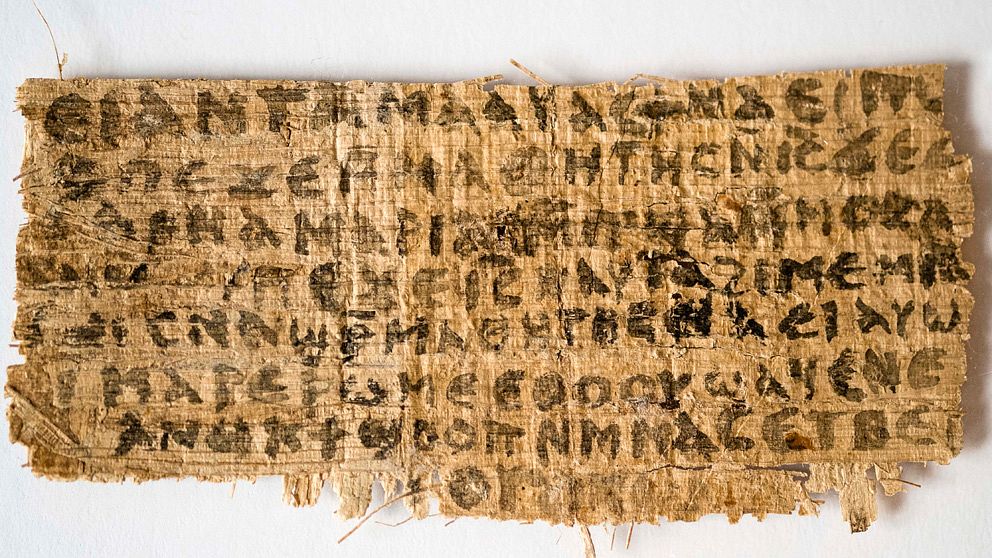 ⲉⲓ ⲁⲛ ⲧⲁⲙⲁⲁⲩ ⲁⲥϯ ⲛⲁⲉⲓ ⲡ
ⲡⲉϫⲉ ⲙⲙⲁⲑⲏⲧⲏⲥ ⲛⲓ̅ⲥ̅ ϫⲉ ⲥ
ⲁⲣⲛⲁ ⲙⲁⲣⲓⲁⲙ ⲙⲡϣⲁ ⲙⲙⲟⲥ ⲁ
ⲡⲉϫⲉ ⲓ̅ⲥ̅ ⲛⲁⲩ ⲧⲁϩⲓⲙⲉ ⲙⲛ
ⲥⲛⲁϣⲣ̅ⲙⲁⲑⲏⲧⲏⲥ ⲛⲁⲉⲓ ⲁⲩⲱ
ⲓ ⲙⲁⲣⲉⲣⲱⲙⲉ ⲉⲑⲟⲟⲩ ϣⲁϥⲉ ⲛⲉ
ⲁⲛⲟⲕ ϯϣⲟⲟⲡ ⲛⲙⲙⲁⲥ ⲉⲧⲃⲉ